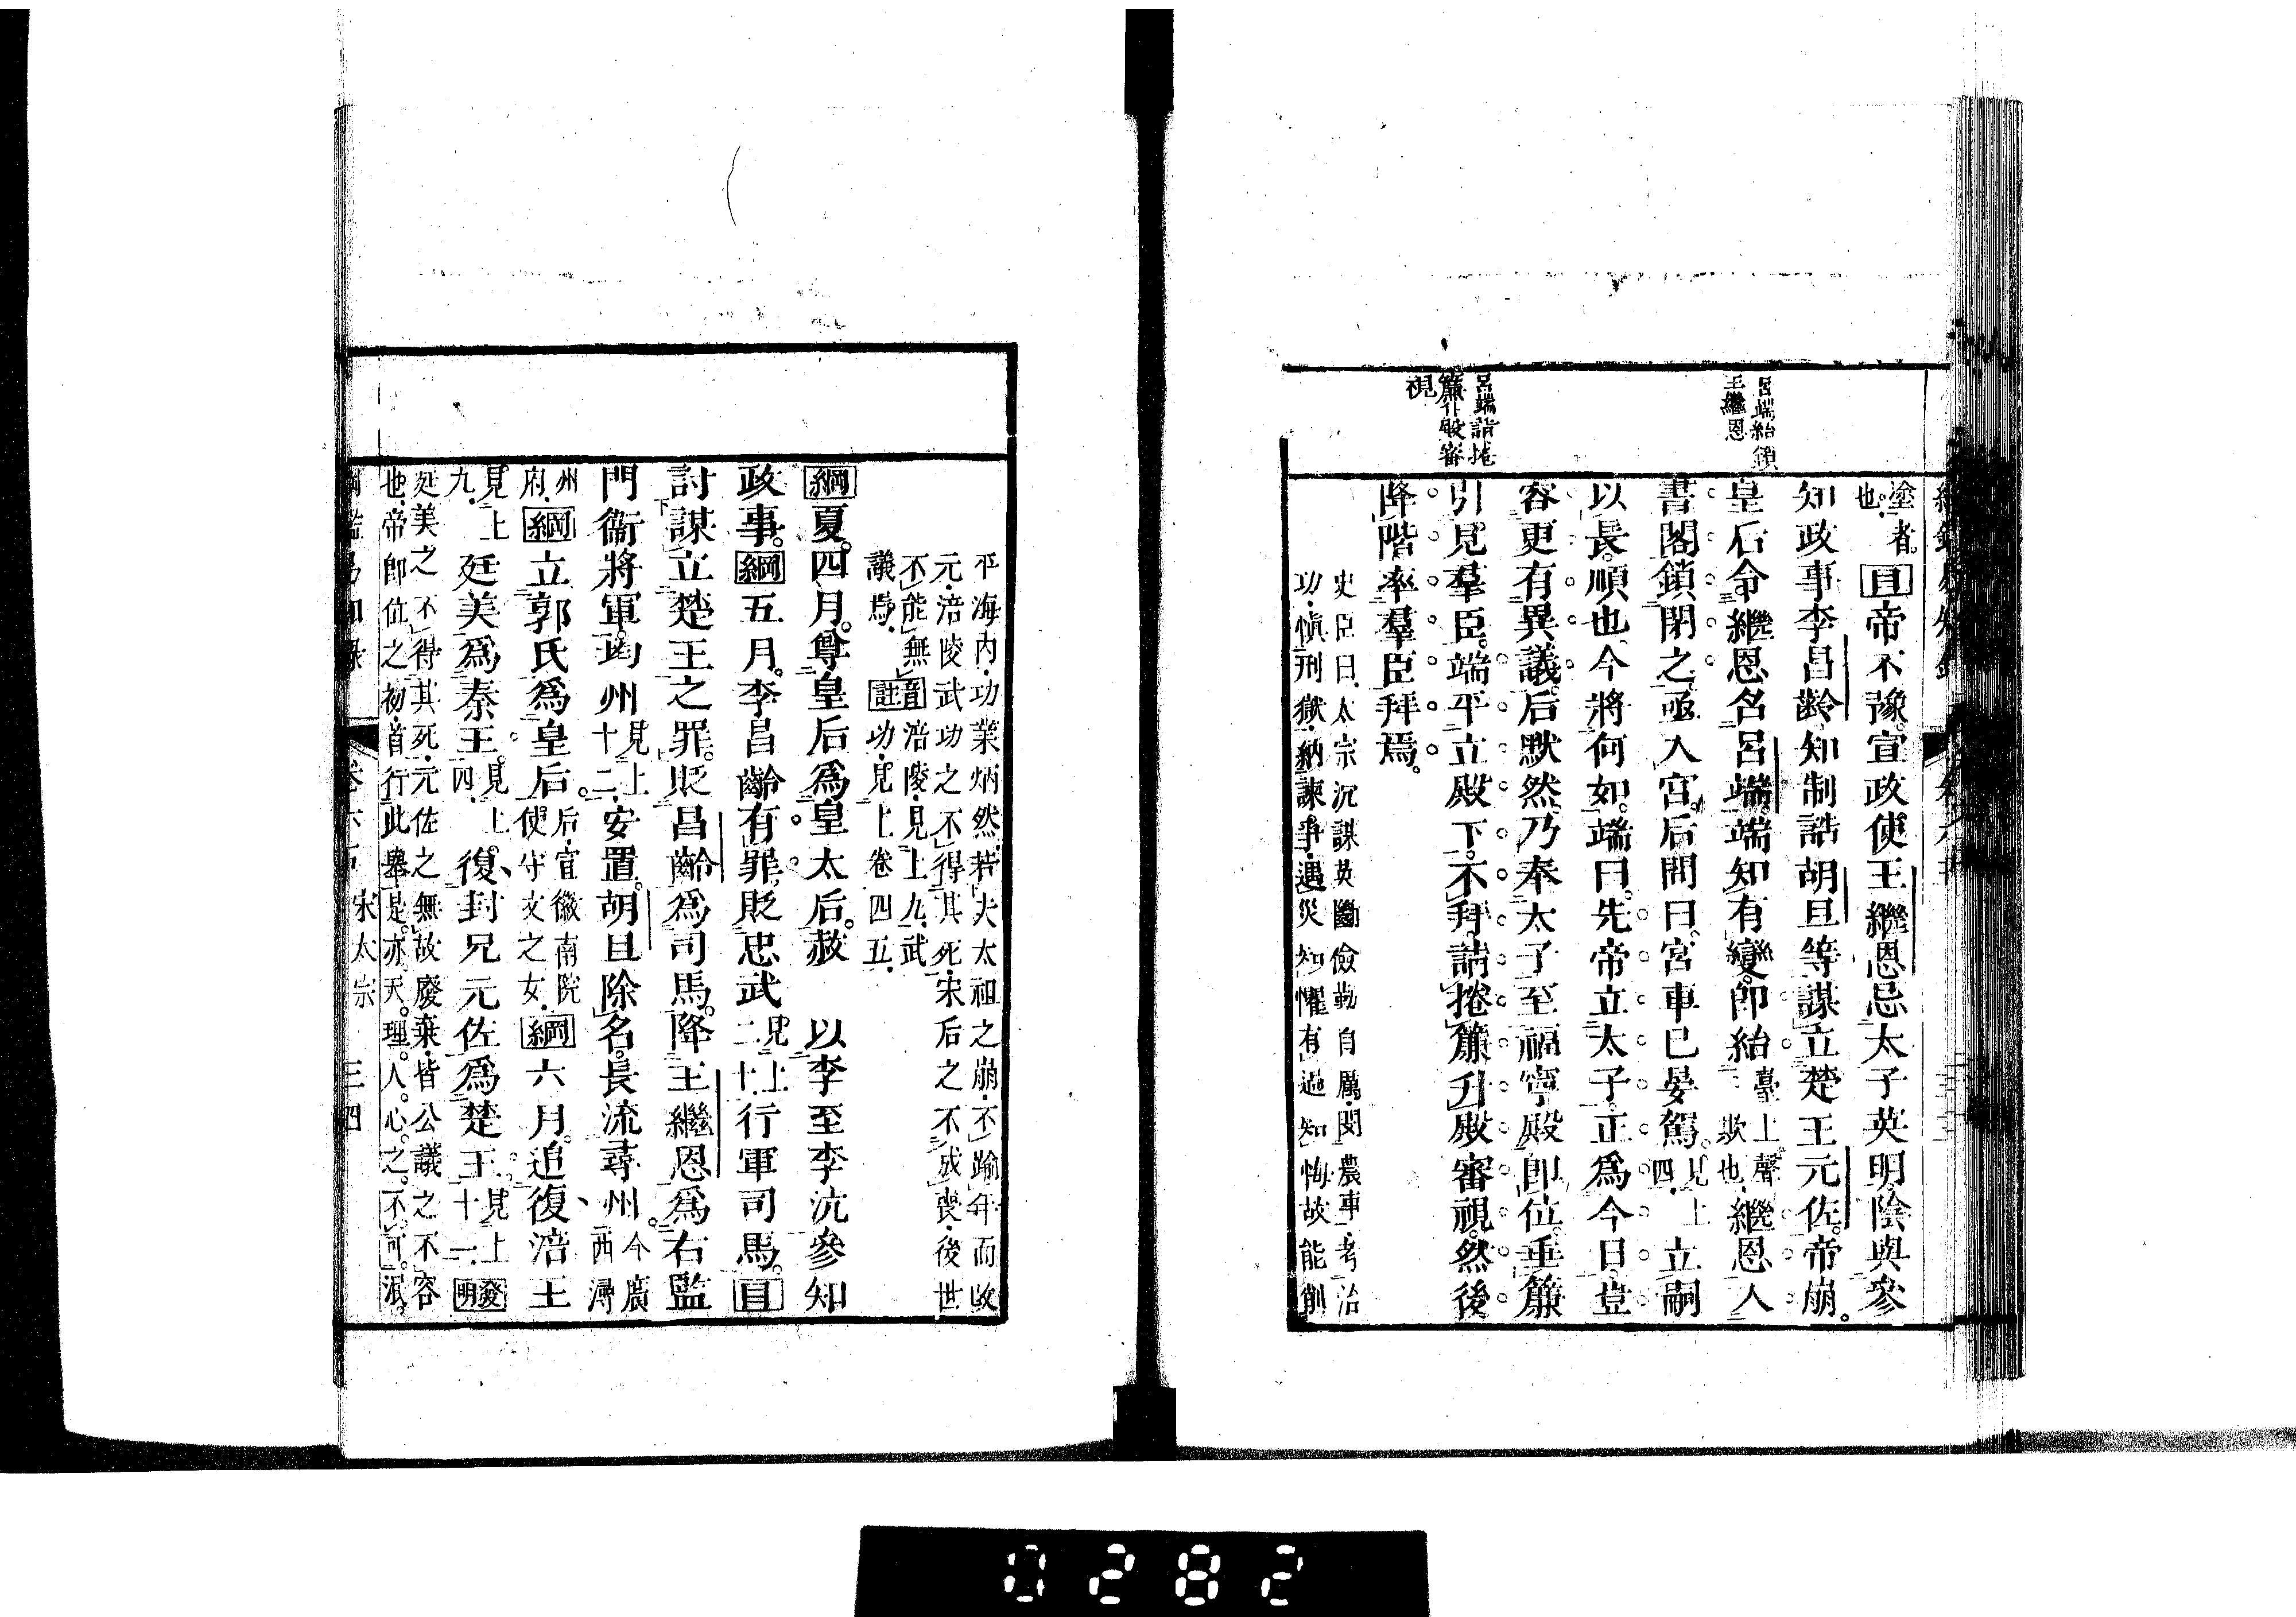 呂端紿鎖
王繼恩
呂端請捲
簾升殿審
視
塗者
也
目帝不豫。宣政使王繼恩忌太子英明陰與參
知政事李昌齡知制誥胡旦等謀立楚王元佐。帝崩。
皇后命繼恩名呂端。端知有變。卽紿臺上聲欺也。繼恩入
書閣鎖閉之。亟入宮。后問曰。宮車已晏駕。見上四立嗣
以長。順也。今將何如。端曰。先帝立太子。正爲今日。豈
容更有異議。后默然。乃奉太子至福寧殿卽位。垂簾
引見羣臣。端平立殿下。不拜。請捲簾升殿審視。然後
降階率羣臣拜焉。
史臣曰。太宗沉謀英斷儉勤自厲。閔農事考治
功愼刑獄納諫爭。遇災知懼有過知悔故能削
平海內功業炳然。若夫太祖之崩不踰年而改
元涪陵武功之不得其死宋后之不成喪後世
不能無
議焉
音涪陵見上九武
註功見上卷四五
綱夏。四月。尊皇后爲皇太后。赦 以李至李沆參知
政事。綱五月。李昌齡有罪貶忠武見上二十行軍司馬。目
討謀立楚王之罪。貶昌齡爲司馬。降王繼恩爲右監
門衞將軍均州見上十二安置。胡旦除名長流尋州。今廣西潯
州
府
綱立郭氏爲皇后。后宣徽南院使守文之女綱六月。追復涪王
見上
九
廷美爲秦王。見上四復封兄元佐爲楚王。見上十一發明
廷美之不得其死元佐之無故廢棄皆公議之不容
也帝卽位之初首行此舉是亦天理人心之不可泯
宋太宗 三四